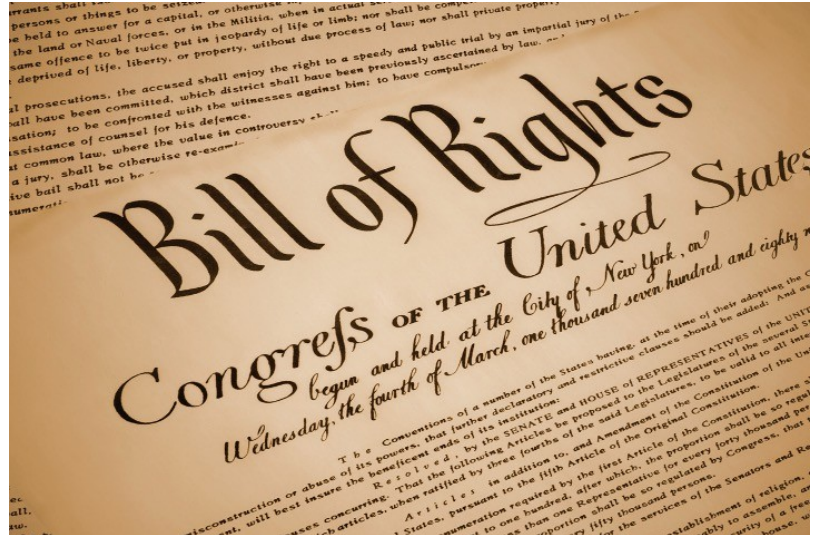 rrants shall
persons or things to be seized
be held to answer for a capital, or otherwise
the land or Naval forces, or in the Militia, when in actual
same offence to be twice put in jeopardy of life or limb; nor shall be
deprived of life, liberty, or property, without due process of law; nor shall private
al prosecutions, the accused shall enjoy the right to a speedy and public trial by an impartial jury of the
all have been committed, which district shall have been previously ascertained by law,
sation; to be confronted with the witnesses against him; to have
ssistance of counsel for his defence.
at common law, where the value in controversy
a jury, shall be otherwise
ive bail shall not be
Bill of Rights
Congreſs OF THE United States
begun and held at the City of New York, on
Wednesday, the fourth of March, one thousand seven hundred and eighty
The Conventions of a number of the States having, at the time of their adopting the
misconstruction or abuse of its powers, that further declaratory and restrictive clauses should be added: And as
ent, will best insure the beneficent ends of its institution:
Resolved, by the SENATE and HOUSE of REPRESENTATIVES of the
uses concurring. That the following Articles be proposed to the Legislatures of the several
ch articles, when ratified by three fourths of the said Legislatures, to be valid to all
Articles in addition to, and Amendment of the Constitution of the
States, pursuant to the fifth Article of the Original Constitution.
enumeration required by the first Article of the Constitution, there
to one hundred, after which, the proportion shall be so
less than one Representative for every forty thousand
proportion shall be so regulated by Congress, that
every fifty thousand persons.
for the services of the Senators and
establishment of religion,
to assemble,
of a free
house,
all.
law.